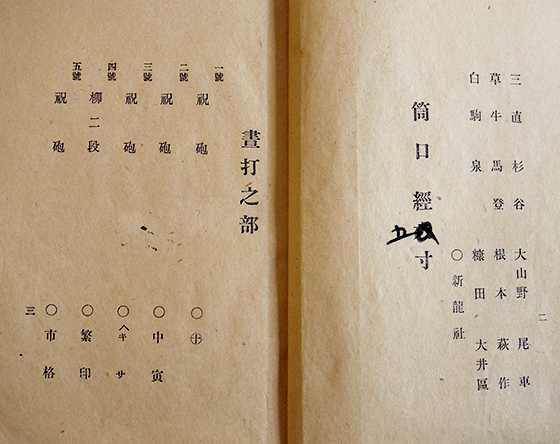 三直 杉谷 大山野 尾車
草牛 馬登 根本 萩作
白駒 泉 糠田 大井區
〇新龍社
筒口經五寸
二
晝打之部
一號 祝砲 〇㊉
二號 祝砲 〇中寅
三號 祝砲 〇へキサ
四號 柳二段 〇繁印
五號 祝砲 〇市格
三